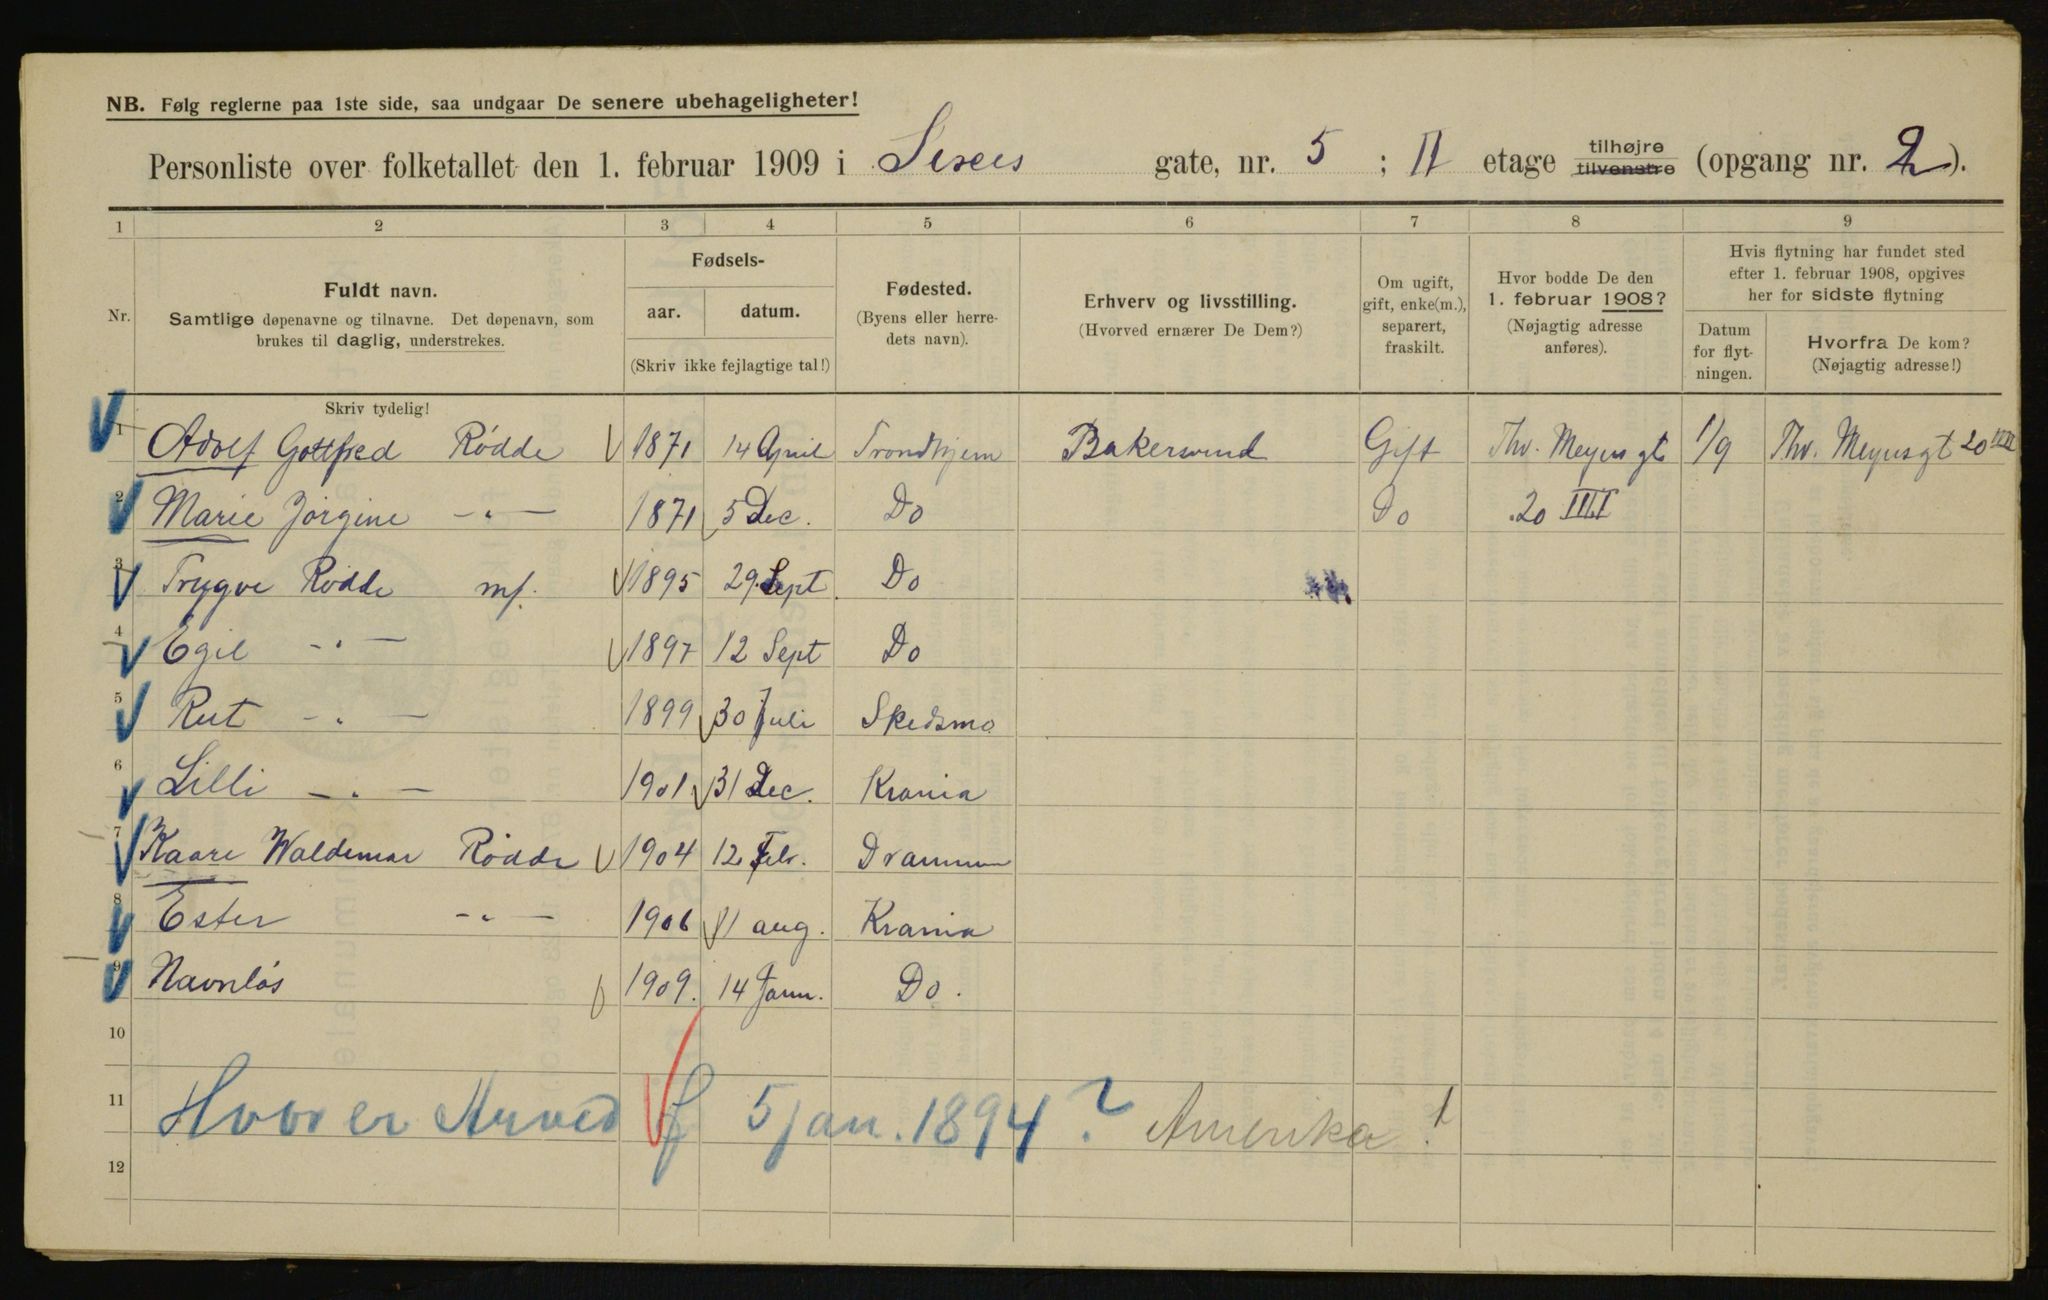 NB. Følg reglerne paa 1ste side, saa undgaar De senere ubehageligheter!
Personliste over folketallet den 1. februar 1909 i gate, nr. 5 ; II etage tilhøjre tilvenstre (opgang nr. 2).
1 2 3 4 5 6 7 8 9
Nr.
Fuldt navn.
Samtlige døpenavne og tilnavne. Det døpenavn, som
brukes til daglig, understrekes.
Skriv tydelig!
Fødsels-
aar. datum.
(Skriv ikke fejlagtige tal!)
Fødested.
(Byens eller herre-
dets navn).
Erhverv og livsstilling.
(Hvorved ernærer De Dem?)
Om ugift,
gift, enke(m.),
separert,
fraskilt.
Hvor bodde De den
1. februar 1908?
(Nøjagtig adresse
anføres).
Hvis flytning har fundet sted
efter 1. februar 1908, opgives
her for sidste flytning
Datum
for flyt-
ningen.
Hvorfra De kom?
(Nøjagtig adresse!)
1 Adolf Gottfred Rødde 1871 14 April Trondhjem Bakersvend Gift Thv. Meyersgt 1/9 Thv. Meyersgt 20 III
2 Marie Jørgine -"- 1871 5 Dec. Do Do 20 III
3 Trygve Rødde 1895 29. Sept Do
4 Egil -"- 1897 12 Sept Do
5 Rut -"- 1899 30 Juli Skedsmo
6 Lilli -"- 1901 31 Dec. Krania
7 Kaare Waldemar Rødde 1904 12 Febr. Drammen
8 Ester -"- 1906 aug. Krania
9 Navnløs 1909. 14 Janu. Do.
10
11 Hvor er Arved f 5 jan. 1894? Amerika!
12